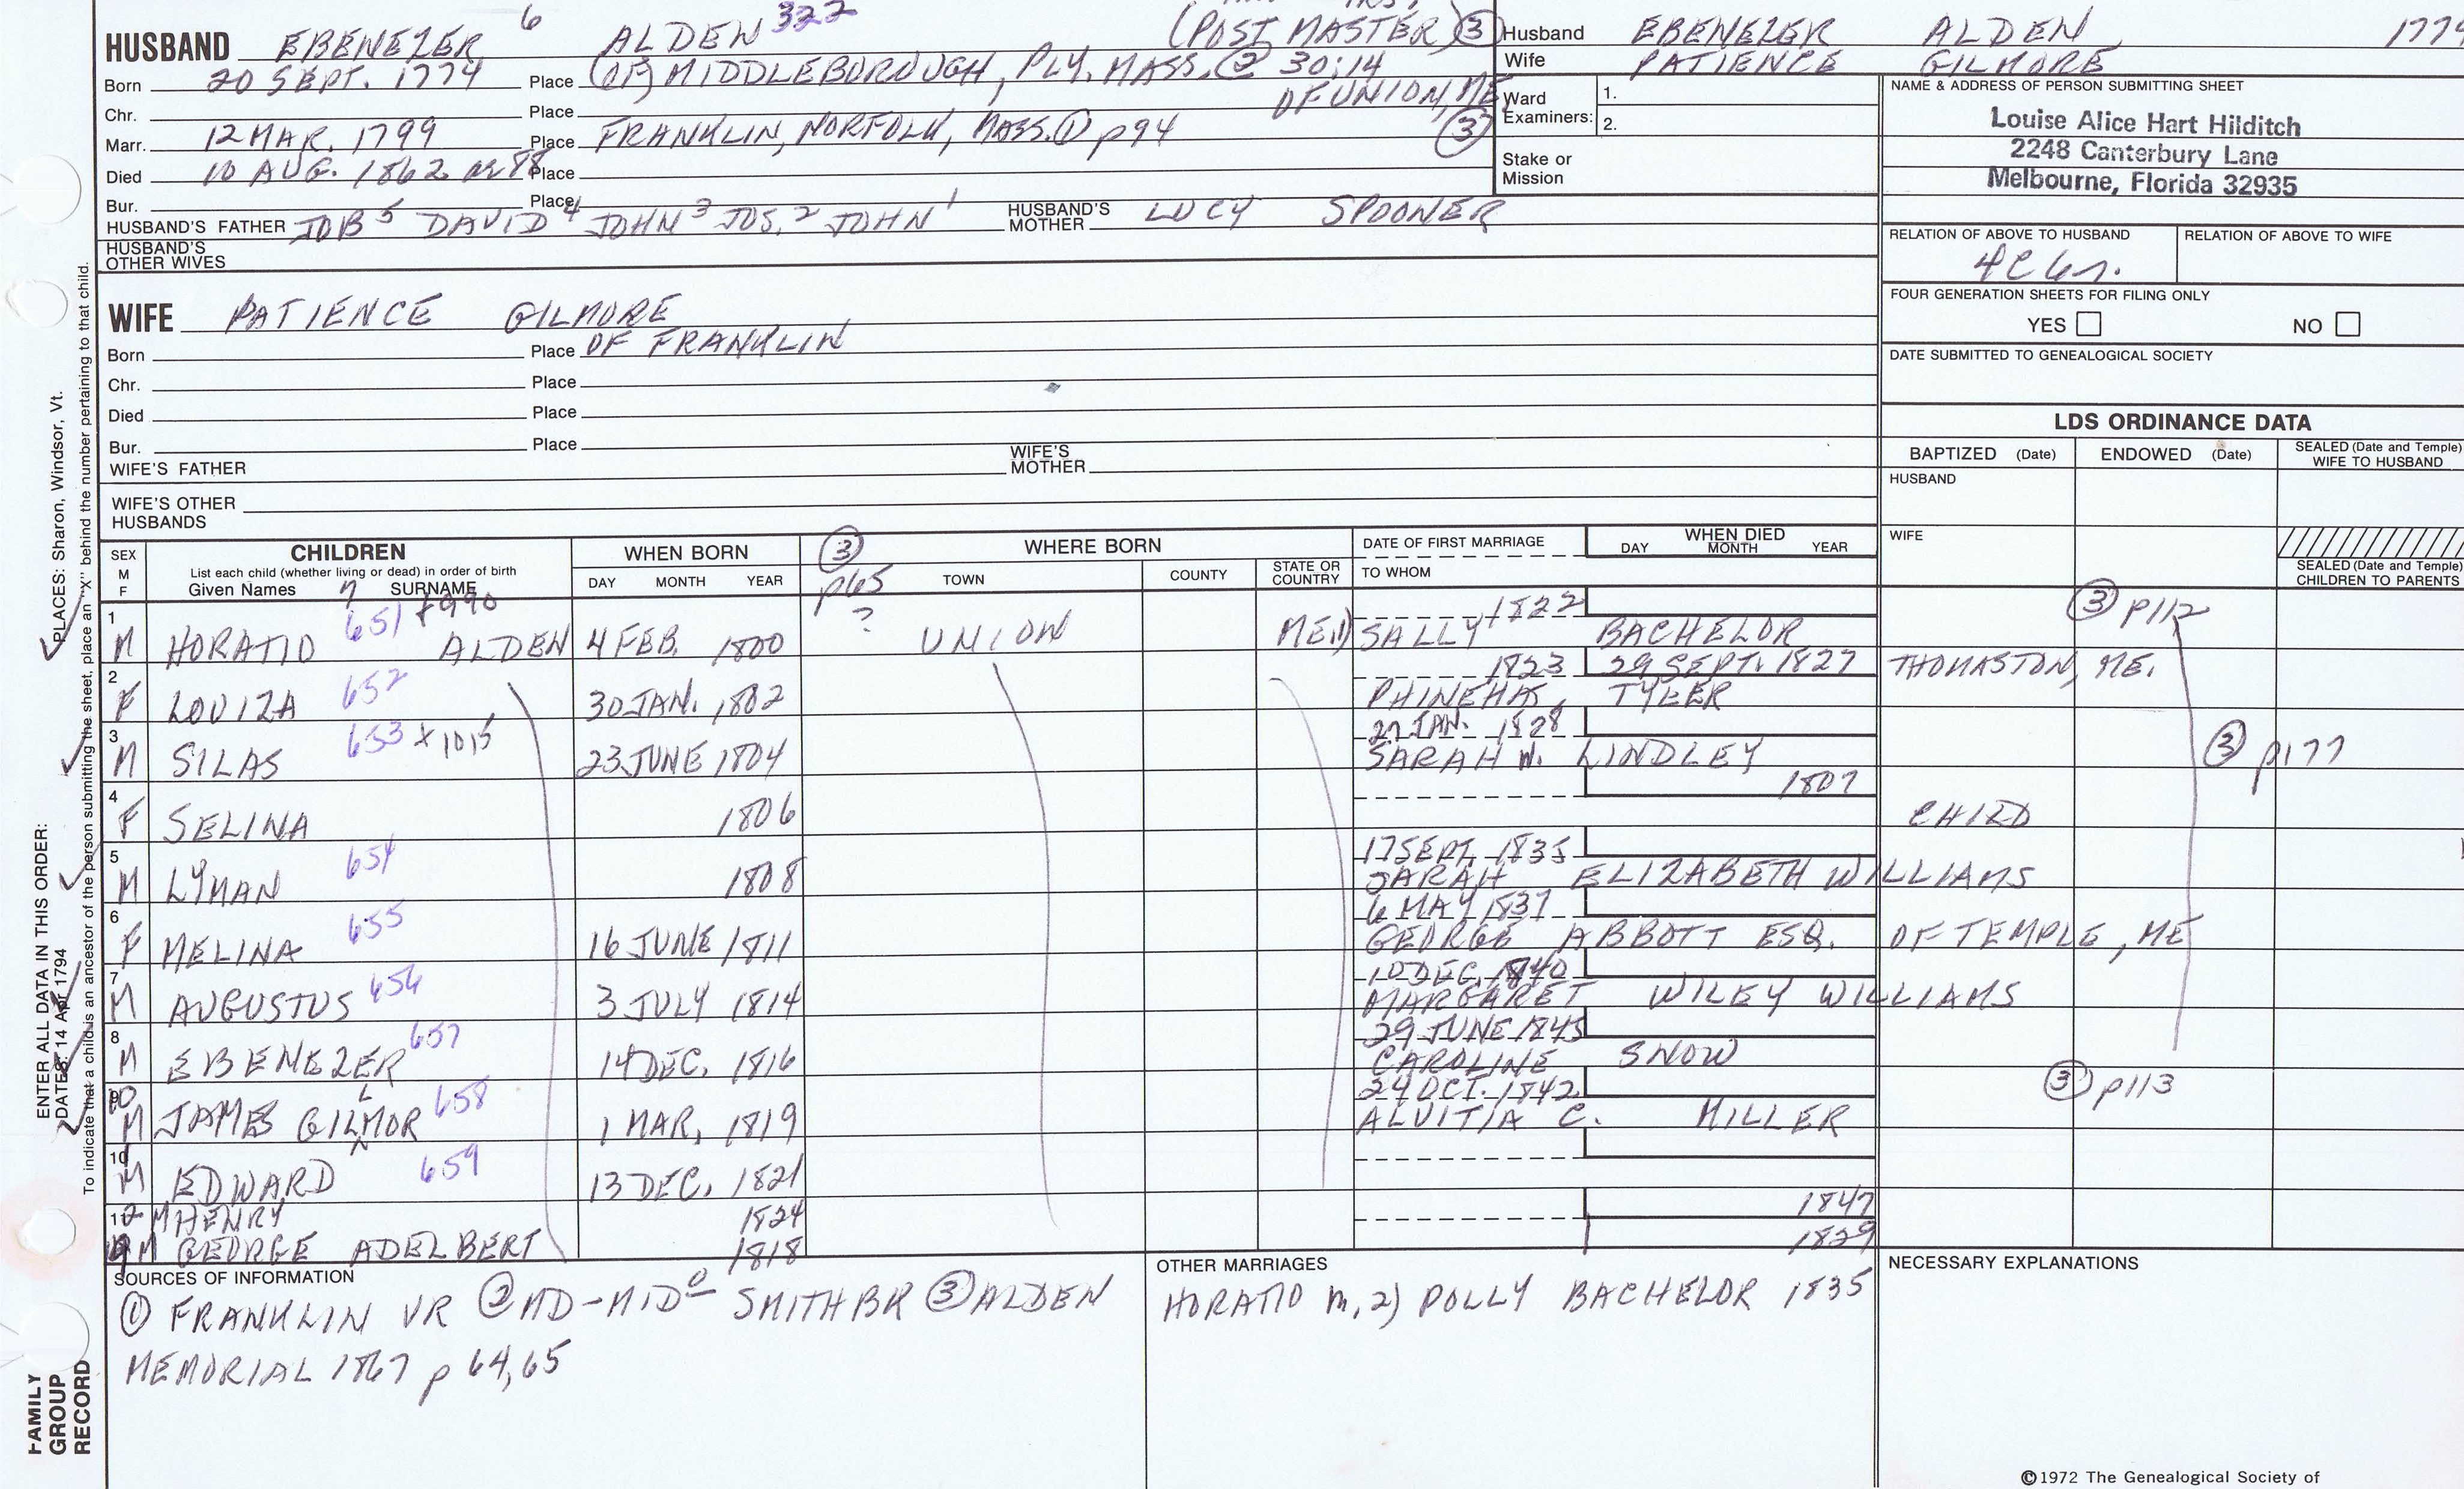 HUSBAND EBENEZER 6 ALDEN 322 (POST MASTER) ③
Born 20 SEPT. 1774 Place (OF) MIDDLEBOROUGH, PLY. MASS. ② 30:14
Chr. Place OF UNION, ME
Marr. 12 MAR. 1799 Place FRANKLIN, NORFOLK, MASS. ① p94 ③
Died 10 AUG. 1862 ae 88 Place
Bur. Place
HUSBAND'S FATHER JOB 5 DAVID 4 JOHN 3 JOS. 2 JOHN 1 HUSBAND'S MOTHER LUCY SPOONER
HUSBAND'S OTHER WIVES
WIFE PATIENCE GILMORE
Born Place OF FRANKLIN
Chr. Place
Died Place
Bur. Place
WIFE'S FATHER WIFE'S MOTHER
WIFE'S OTHER HUSBANDS
Husband EBENEZER ALDEN 1774
Wife PATIENCE GILMORE
Ward Examiners: 1.
2.
Stake or Mission
NAME & ADDRESS OF PERSON SUBMITTING SHEET
Louise Alice Hart Hilditch
2248 Canterbury Lane
Melbourne, Florida 32935
RELATION OF ABOVE TO HUSBAND RELATION OF ABOVE TO WIFE
4C 6r.
FOUR GENERATION SHEETS FOR FILING ONLY
YES NO
DATE SUBMITTED TO GENEALOGICAL SOCIETY
LDS ORDINANCE DATA
BAPTIZED (Date) ENDOWED (Date) SEALED (Date and Temple) WIFE TO HUSBAND
HUSBAND
WIFE
SEALED (Date and Temple) CHILDREN TO PARENTS
SEX M F CHILDREN WHEN BORN ③ WHERE BORN DATE OF FIRST MARRIAGE WHEN DIED
List each child (whether living or dead) in order of birth
Given Names 7 SURNAME DAY MONTH YEAR p65 TOWN COUNTY STATE OR COUNTRY TO WHOM DAY MONTH YEAR
651 +990 ? 1822 ③ p112
1 M HORATIO ALDEN 4 FEB. 1800 UNION ME. 1) SALLY BACHELOR
652 1823 29 SEPT. 1827 THOMASTON, ME.
2 F LOUIZA 30 JAN. 1802 PHINEHAS TYLER
653 + 1015 27 JAN. 1828
3 M SILAS 23 JUNE 1804 SARAH W. LINDLEY ③ p177
1807
4 F SELINA 1806 CHILD
654 17 SEPT. 1835
5 M LYMAN 1808 SARAH ELIZABETH WILLIAMS
655 6 MAY 1837
6 F MELINA 16 JUNE 1811 GEORGE ABBOTT ESQ. OF TEMPLE, ME
656 10 DEC. 1840
7 M AUGUSTUS 3 JULY 1814 MARGARET WILEY WILLIAMS
657 29 JUNE 1845
8 M EBENEZER 14 DEC. 1816 CAROLINE SNOW
658 24 OCT. 1842 ③ p113
10 M JAMES GILMOR 1 MAR. 1819 ALVITIA C. MILLER
659
10 M EDWARD 13 DEC. 1821
12 M HENRY 1824 1847
9 M GEORGE ADELBERT 1818 1829
SOURCES OF INFORMATION
① FRANKLIN VR ② MD-MIDº SMITH BR ③ ALDEN
MEMORIAL 1867 p 64,65
OTHER MARRIAGES
HORATIO m. 2) POLLY BACHELOR 1835
NECESSARY EXPLANATIONS
©1972 The Genealogical Society of
ENTER ALL DATA IN THIS ORDER:
PLACES: Sharon, Windsor, Vt.
DATES: 14 Apr 1794
To indicate that a child is an ancestor of the person submitting the sheet, place an "X" behind the number pertaining to that child.
FAMILY GROUP RECORD